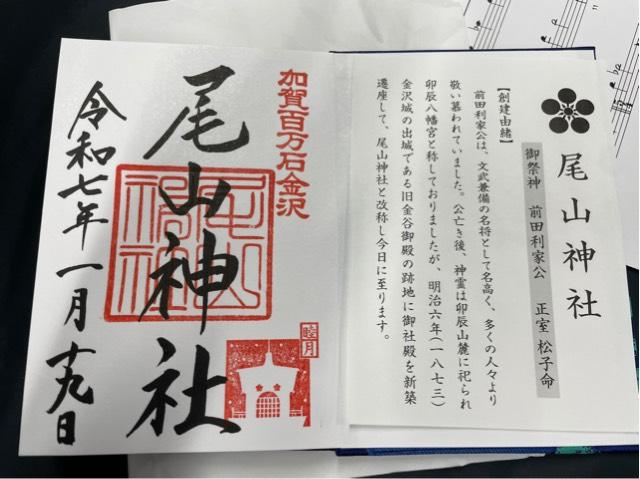 尾山神社
御祭神　前田利家公　正室 松子命
【創建由緒】
前田利家公は、文武兼備の名将として名高く、多くの人々より
敬い慕われていました。公亡き後、神霊は卯辰山麓に祀られ
卯辰八幡宮と称しておりましたが、明治六年(一八七三)
金沢城の出城である旧金谷御殿の跡地に御社殿を新築
遷座して、尾山神社と改称し今日に至ります。
加賀百万石金沢
尾山神社
睦月
令和七年一月十九日